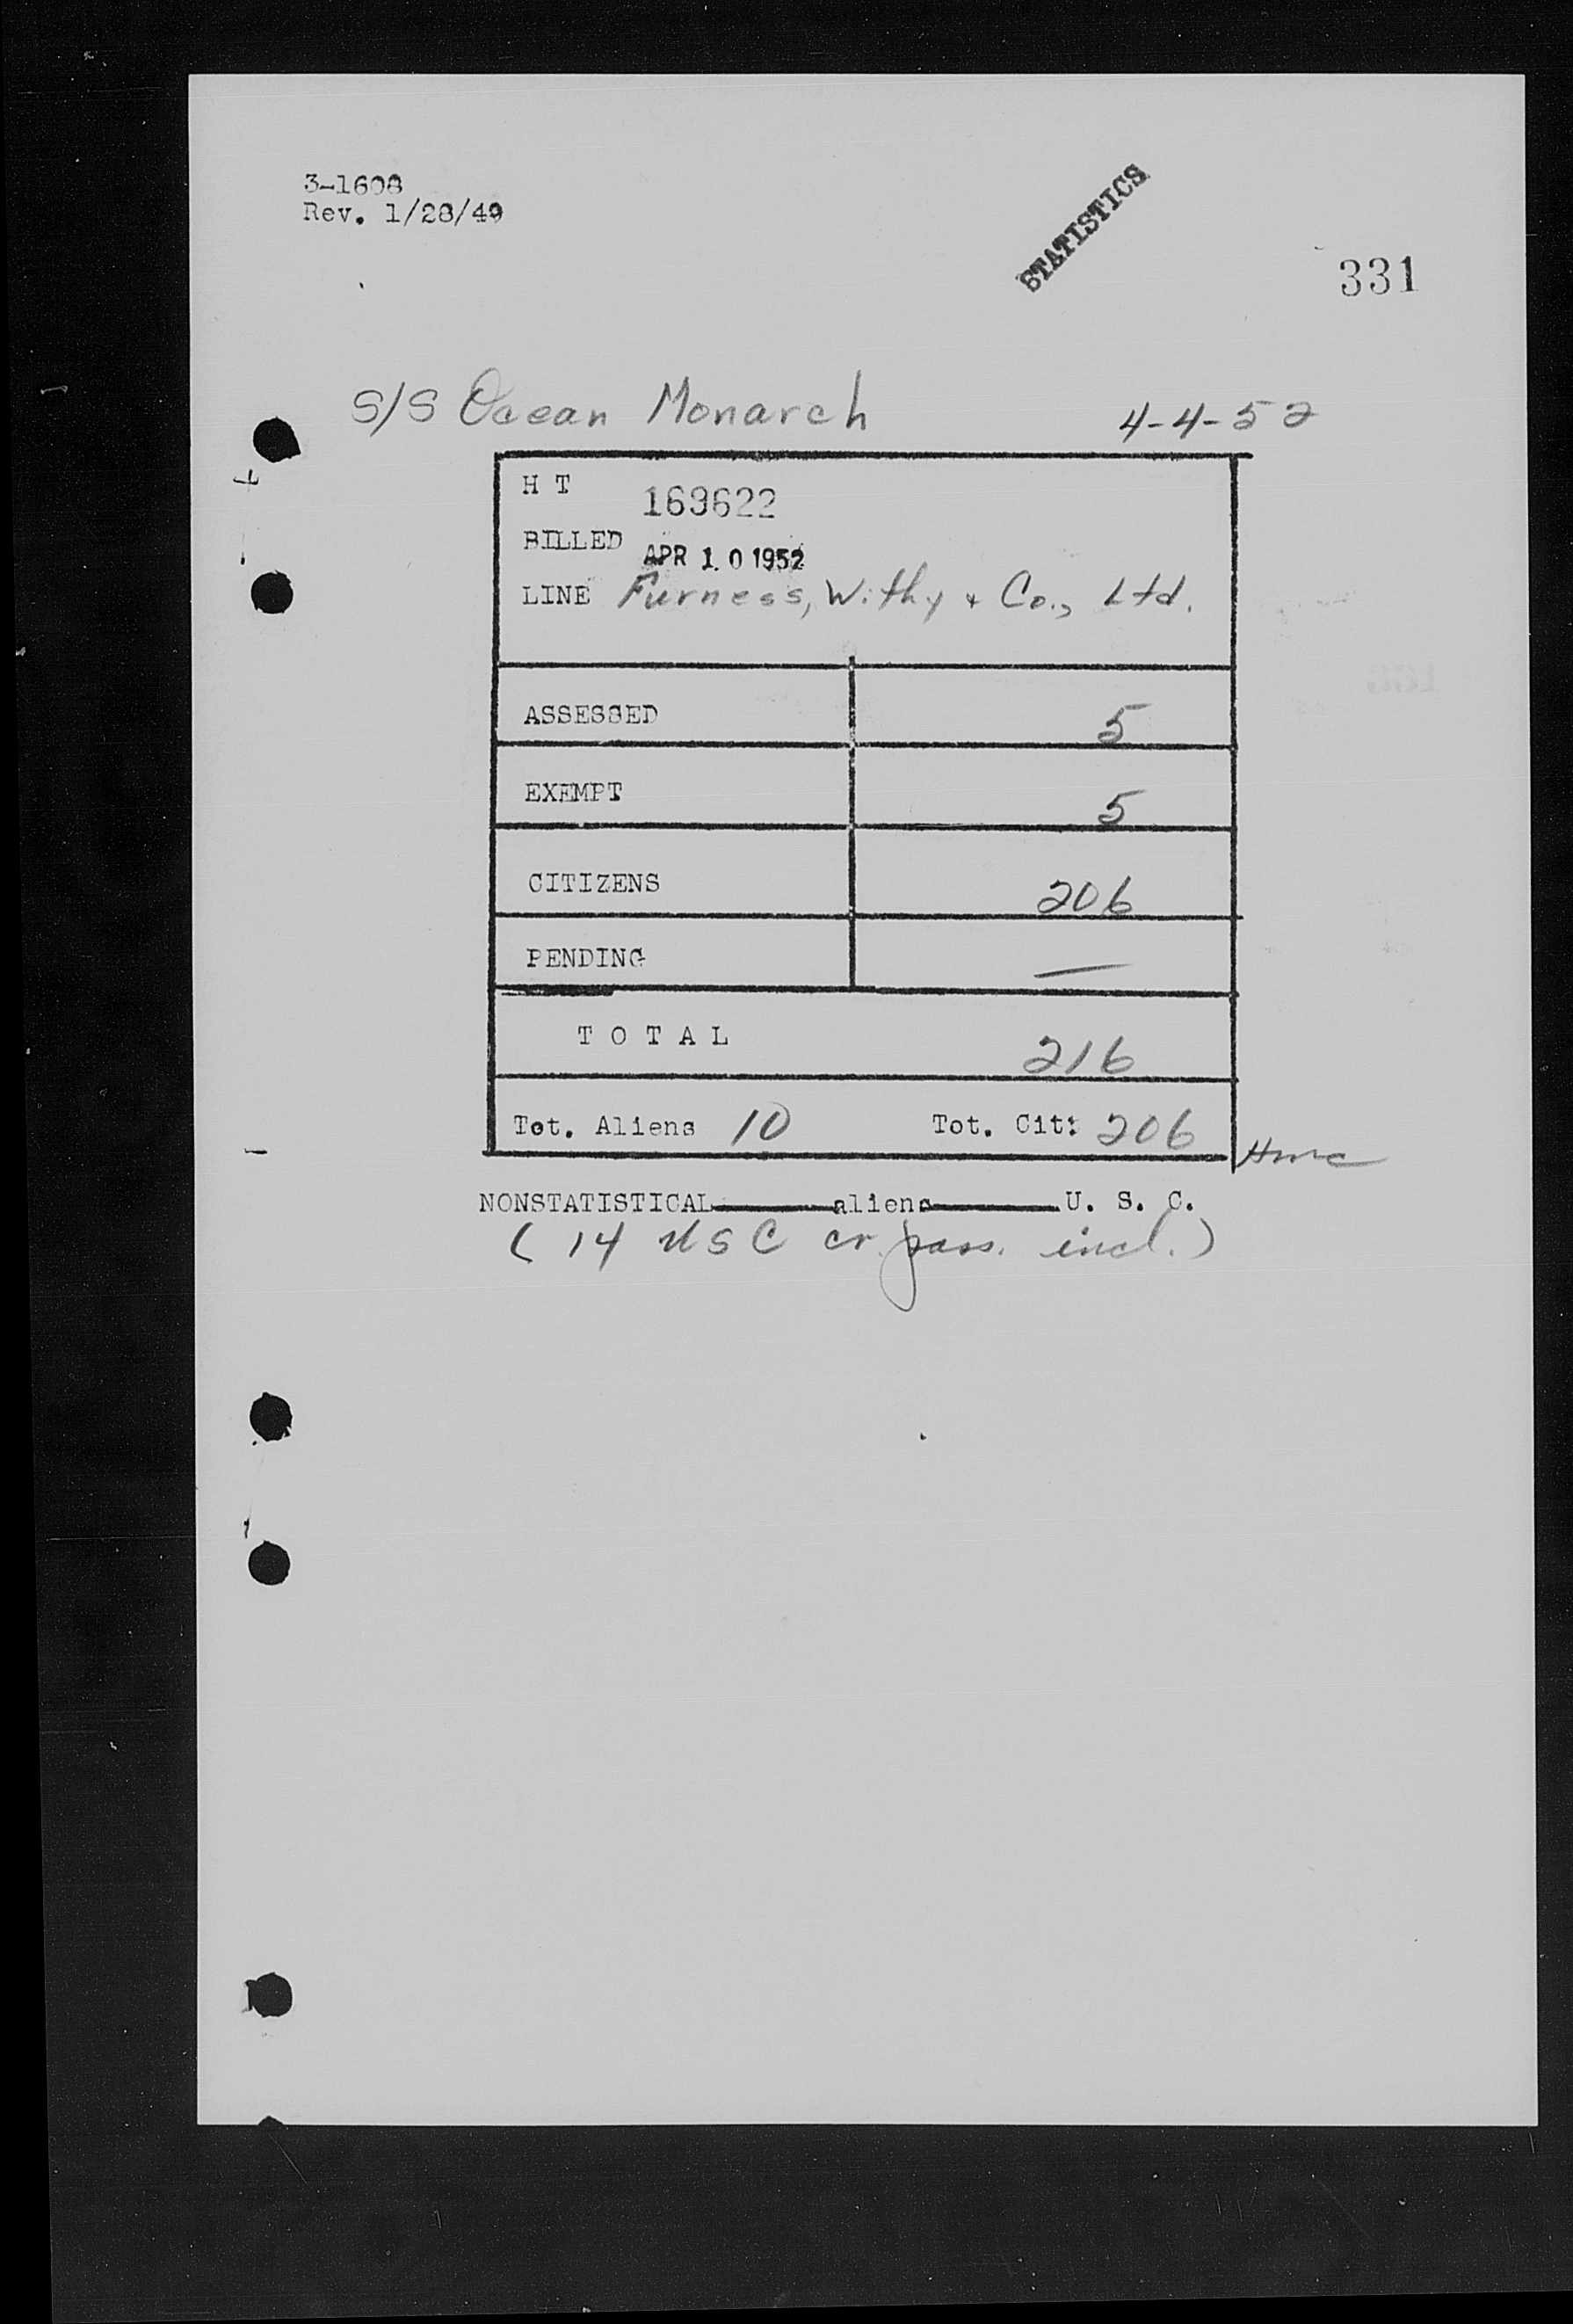 3-1608
Rev. 1/28/49
STATISTICS
331
S/S Ocean Monarch 4-4-52
H T 169622
BILLED APR 10 1952
LINE Furness, Withy + Co., Ltd.
ASSESSED 5
EXEMPT 5
CITIZENS 206
PENDING —
T O T A L 216
Tot. Aliens 10 Tot. Cit: 206
NONSTATISTICAL aliens U. S. C.
( 14 USC cr. pass. incl. )